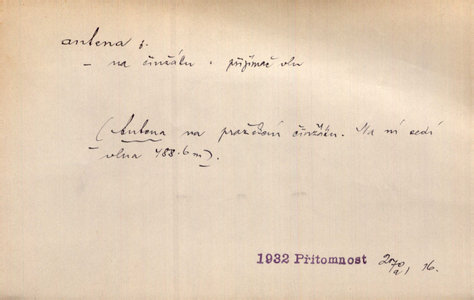 antena ž.
– na činžáku, přijímač vln
(Antena na pražském činžáku. Na ní sedí
vlna 488·6 m).
1932 Přítomnost 16.